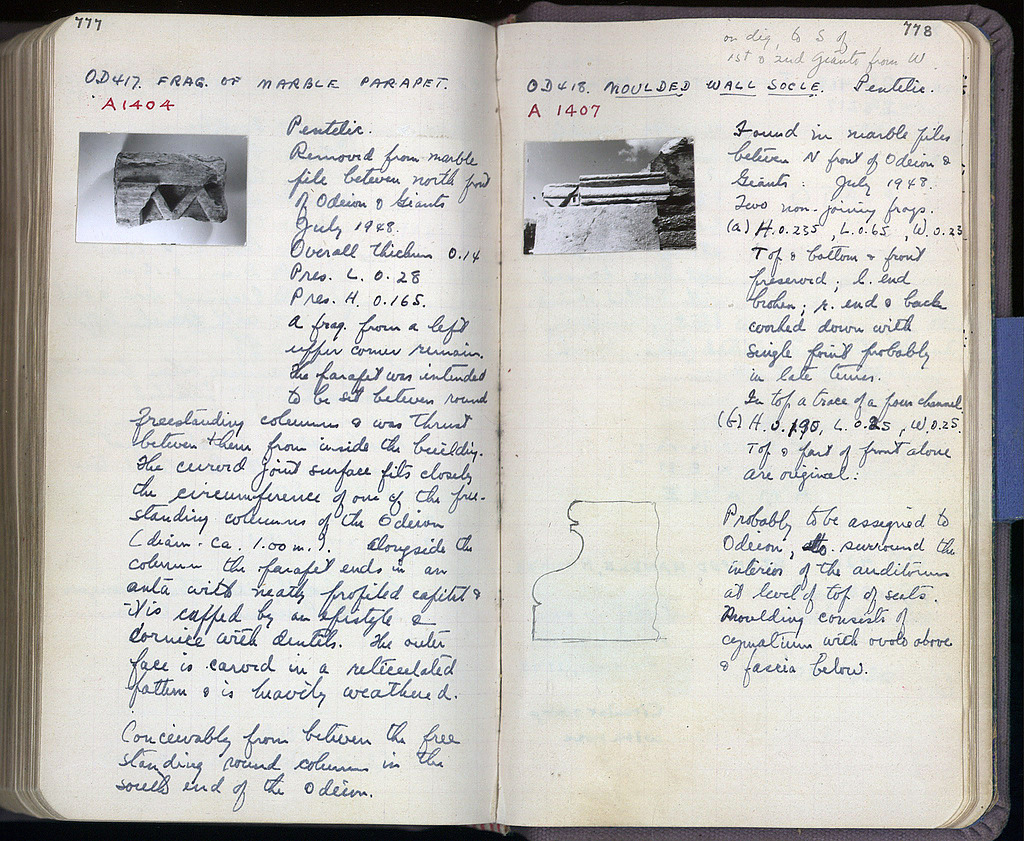 777
OD417. FRAG. OF MARBLE PARAPET.
A1404
Pentelic.
Removed from marble
pile between north front
of Odeion & Giants
July 1948.
Overall thickness 0.14
Pres. L. 0.28
Pres. H. 0.165.
A frag. from a left
upper corner remains.
The parapet was intended
to be set between round
freestanding columns & was thrust
between them from inside the building.
The curved joint surface fits closely
the circumference of one of the free-
standing columns of the Odeion
(diam. ca. 1.00 m.). Alongside the
column the parapet ends in an
anta with neatly profiled capital &
it is capped by an epistyle &
cornice with dentils. The outer
face is carved in a reticulated
pattern & is heavily weathered.
Conceivably from between the free
standing round columns in the
south end of the Odeion.
778
on dig, to S of
1st & 2nd Giants from W.
OD418. MOULDED WALL SOCLE. Pentelic.
A 1407
Found in marble piles
between N front of Odeion &
Giants. July 1948.
Two non-joining frags.
(a) H. 0.235, L. 0.65, W. 0.23
Top & bottom & front
preserved; l. end
broken; r. end & back
worked down with
single point probably
in late times.
In top a trace of a pour channel.
(b) H. 0.190, L. 0.25, W. 0.25.
Top & part of front alone
are original.
Probably to be assigned to
Odeion, to surround the
interior of the auditorium
at level of top of seats.
Moulding consists of
cymatium with ovolo above
& fascia below.